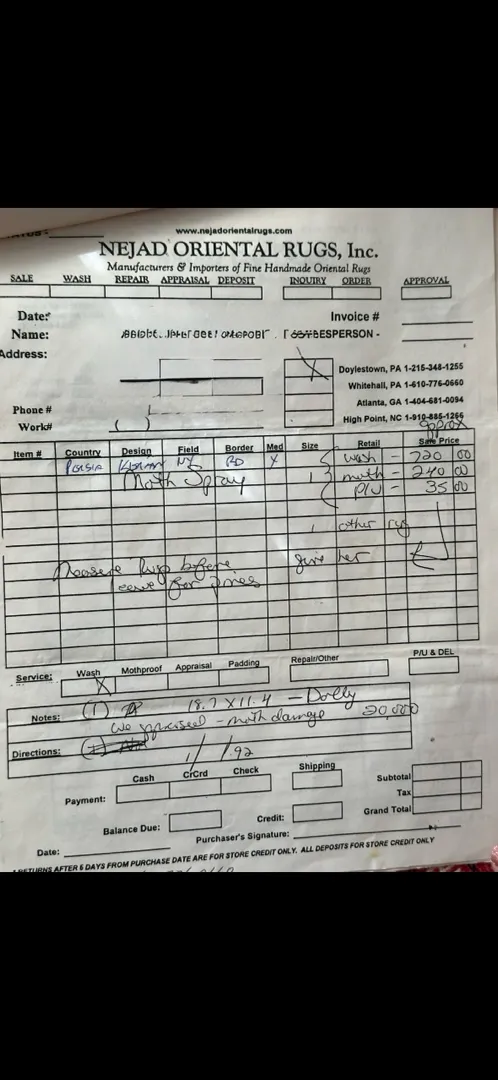 www.nejadorientalrugs.com
NEJAD ORIENTAL RUGS, Inc.
Manufacturers & Importers of Fine Handmade Oriental Rugs
SALE WASH REPAIR APPRAISAL DEPOSIT INQUIRY ORDER APPROVAL
Date: Invoice #
Name: SPERSON -
Address:
Doylestown, PA 1-215-348-1255
Whitehall, PA 1-610-776-0660
Atlanta, GA 1-404-681-0094
Phone #
High Point, NC 1-910-885-1266
Work# ( )
approx
Item # Country Design Field Border Med Size Retail Sale Price
Persia Kirman NY RD X wash - 720 00
Moth Spray 1 moth - 240 00
P/U - 35 00
1 other rug
Measure Rug before give her
leave for prices
Service: Wash Mothproof Appraisal Padding Repair/Other P/U & DEL
X
Notes: (1) 18.7 X 11.4 - Dolly
we appraised - moth damage 20,000
Directions: 1/ /92
Cash CrCrd Check Shipping
Payment: Subtotal
Tax
Balance Due: Credit: Grand Total
Purchaser's Signature:
Date:
RETURNS AFTER 5 DAYS FROM PURCHASE DATE ARE FOR STORE CREDIT ONLY. ALL DEPOSITS FOR STORE CREDIT ONLY